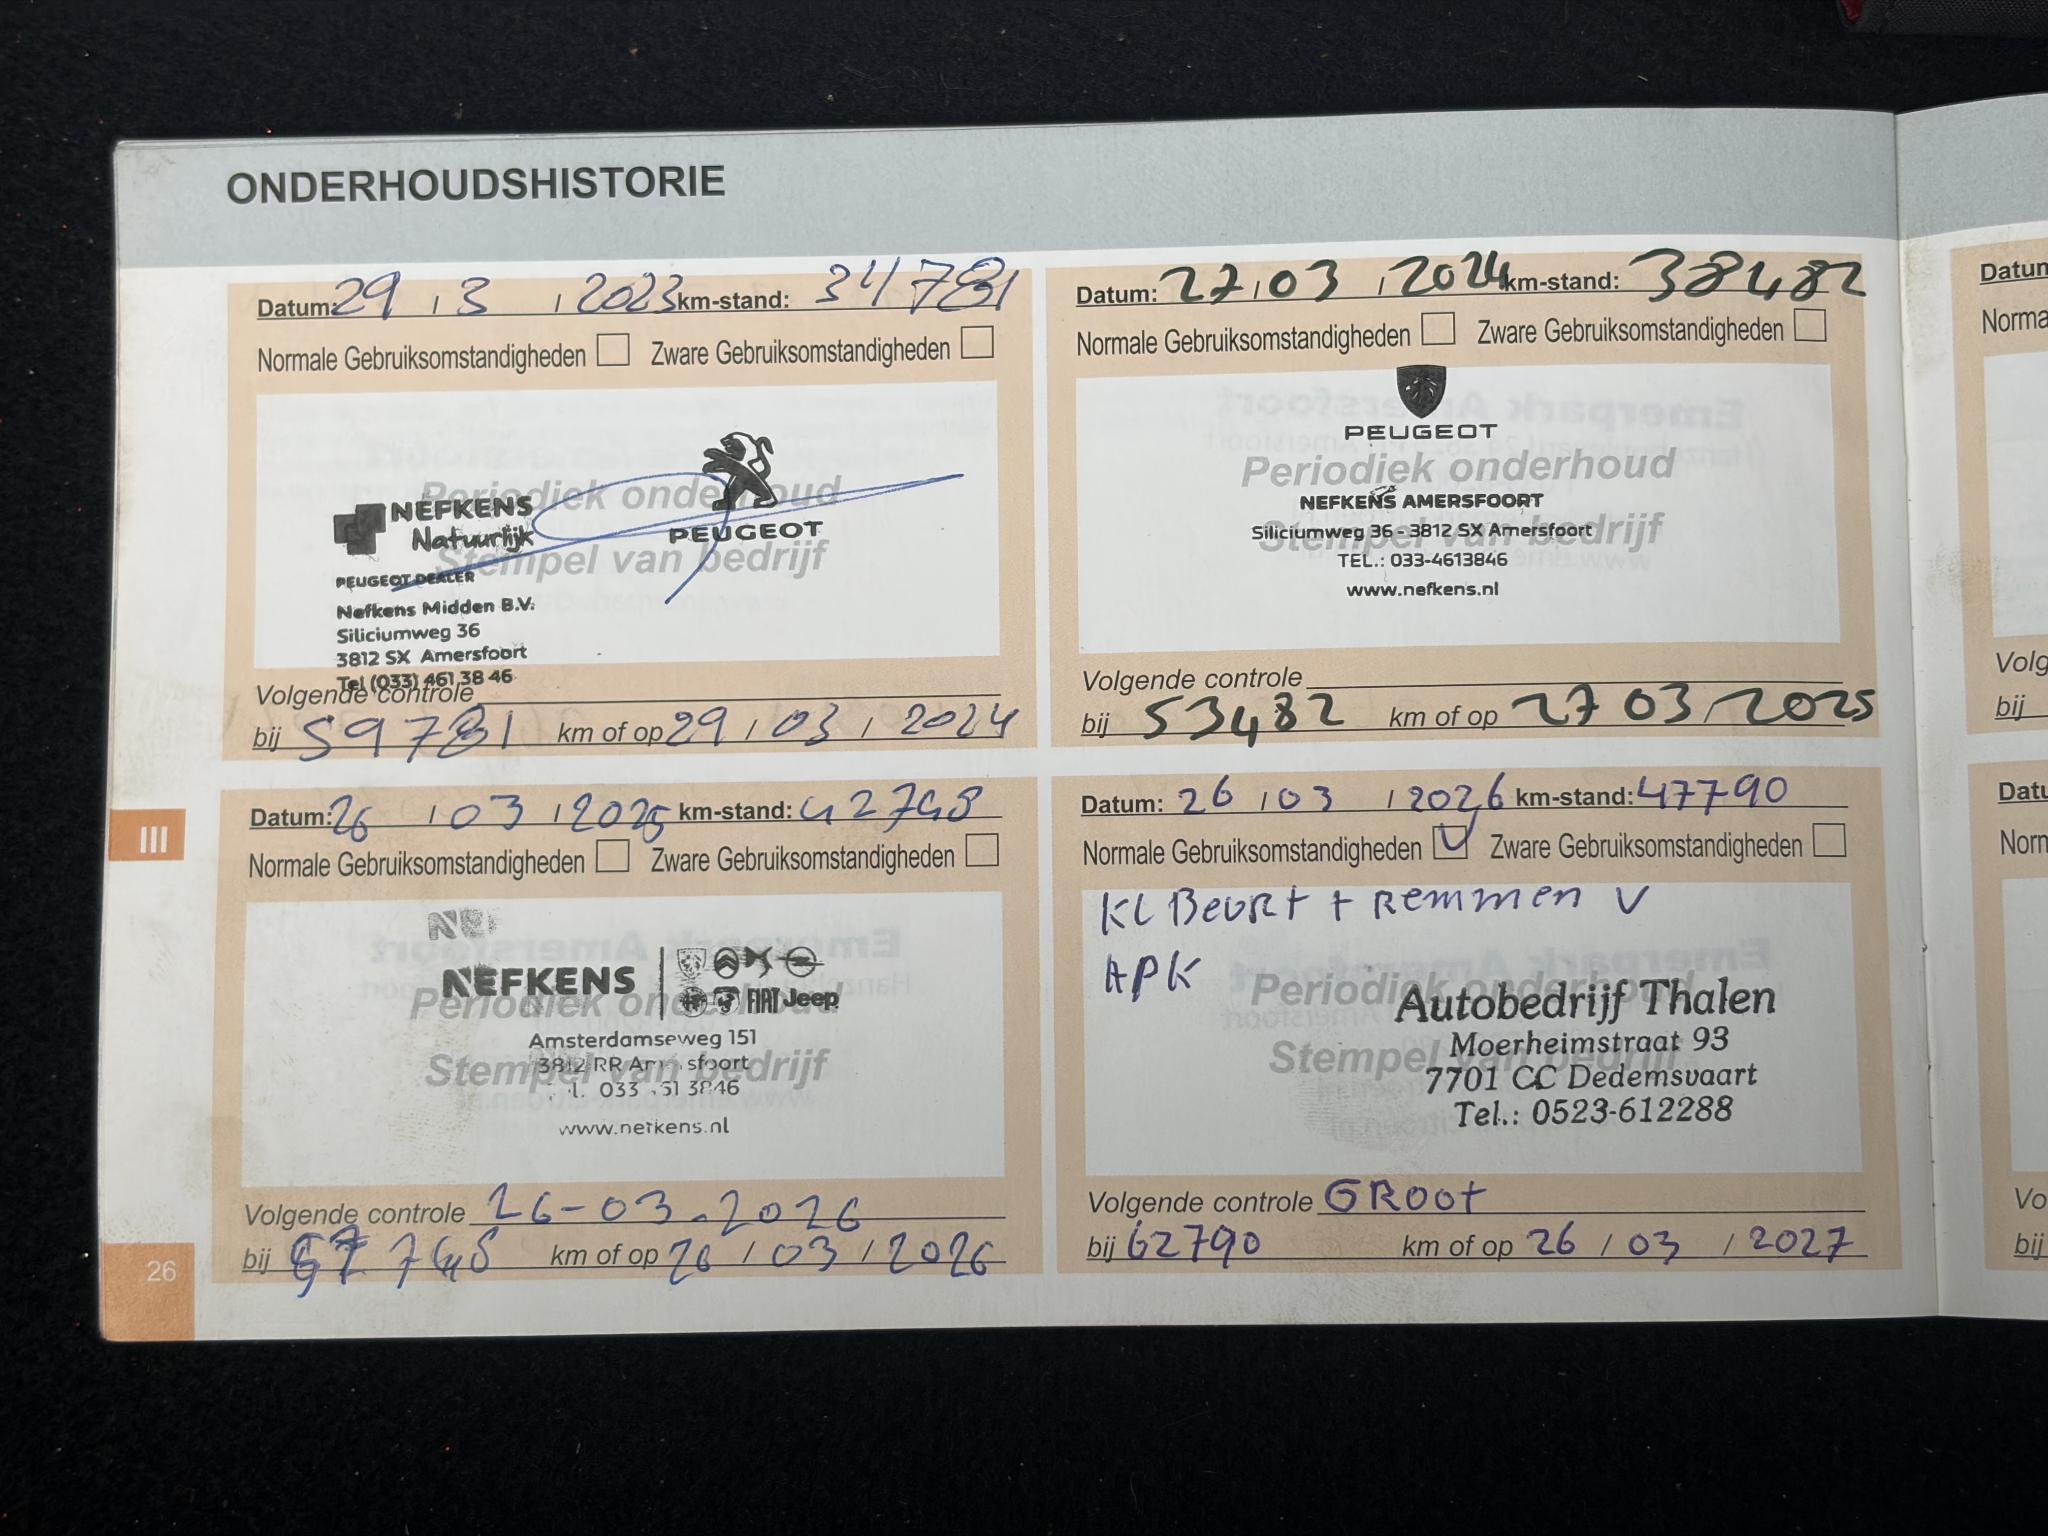 ONDERHOUDSHISTORIE
Datum: 29 / 3 / 2023 km-stand: 34781
Normale Gebruiksomstandigheden Zware Gebruiksomstandigheden
Periodiek onderhoud
Stempel van bedrijf
NEFKENS
Natuurlijk
PEUGEOT
PEUGEOT DEALER
Nefkens Midden B.V.
Siliciumweg 36
3812 SX Amersfoort
Tel (033) 461 38 46
Volgende controle
bij 59781 km of op 29 / 03 / 2024
Datum: 27 / 03 / 2024 km-stand: 38482
Normale Gebruiksomstandigheden Zware Gebruiksomstandigheden
PEUGEOT
Periodiek onderhoud
NEFKENS AMERSFOORT
Siliciumweg 36 - 3812 SX Amersfoort
Stempel van bedrijf
TEL.: 033-4613846
www.nefkens.nl
Volgende controle
bij 53482 km of op 27 03 / 2025
III
Datum: 26 / 03 / 2025 km-stand: 42748
Normale Gebruiksomstandigheden Zware Gebruiksomstandigheden
NEFKENS FIAT Jeep
Periodiek onderhoud
Amsterdamseweg 151
3812 RR Amersfoort
Stempel van bedrijf
www.nefkens.nl
Volgende controle 26-03-2026
bij km of op 26 / 03 / 2026
Datum: 26 / 03 / 2026 km-stand: 47790
Normale Gebruiksomstandigheden V Zware Gebruiksomstandigheden
KL Beurt + Remmen V
APK
Periodiek onderhoud
Stempel van bedrijf
Autobedrijf Thalen
Moerheimstraat 93
7701 CC Dedemsvaart
Tel.: 0523-612288
Volgende controle GROOt
bij 62790 km of op 26 / 03 / 2027
26
Datum
Norma
Volg
bij
Datu
Norm
Vo
bij